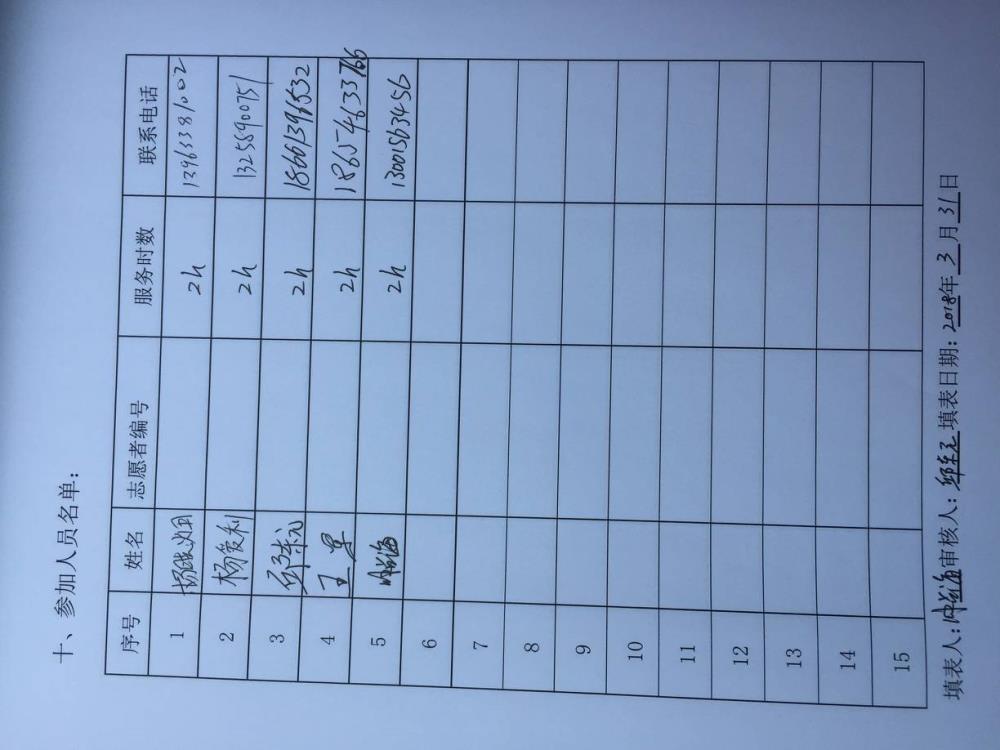 十、参加人员名单：
序号 姓名 志愿者编号 服务时数 联系电话
1 2h 13963381002
2 杨爱利 2h 13258900751
3 2h 18661396532
4 王军 2h 18654633766
5 2h 13001563456
6
7
8
9
10
11
12
13
14
15
填表人： 审核人： 填表日期：2018年3月31日